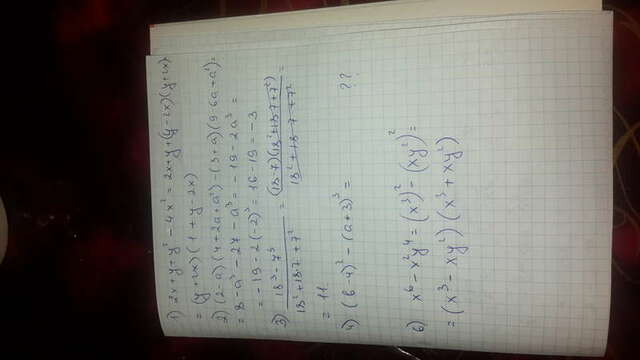 1) 2x+y+y²-4x² = 2x+y+(y-2x)(y+2x)
= (y+2x)(1+y-2x)
2) (2-a)(4+2a+a²)-(3+a)(9-6a+a²)=
= 8-a³-27-a³ = -19-2a³ =
= -19-2(-2)³ = 16-19 = -3
3) (18³-7³)/(18²+18·7+7²) = (18-7)(18²+18·7+7²)/(18²+18·7+7²) =
= 11
4) (6-4)²-(a+3)³ = ??
6) x⁶-x²y⁴ = (x³)²-(xy²)² =
= (x³-xy²)(x³+xy²)